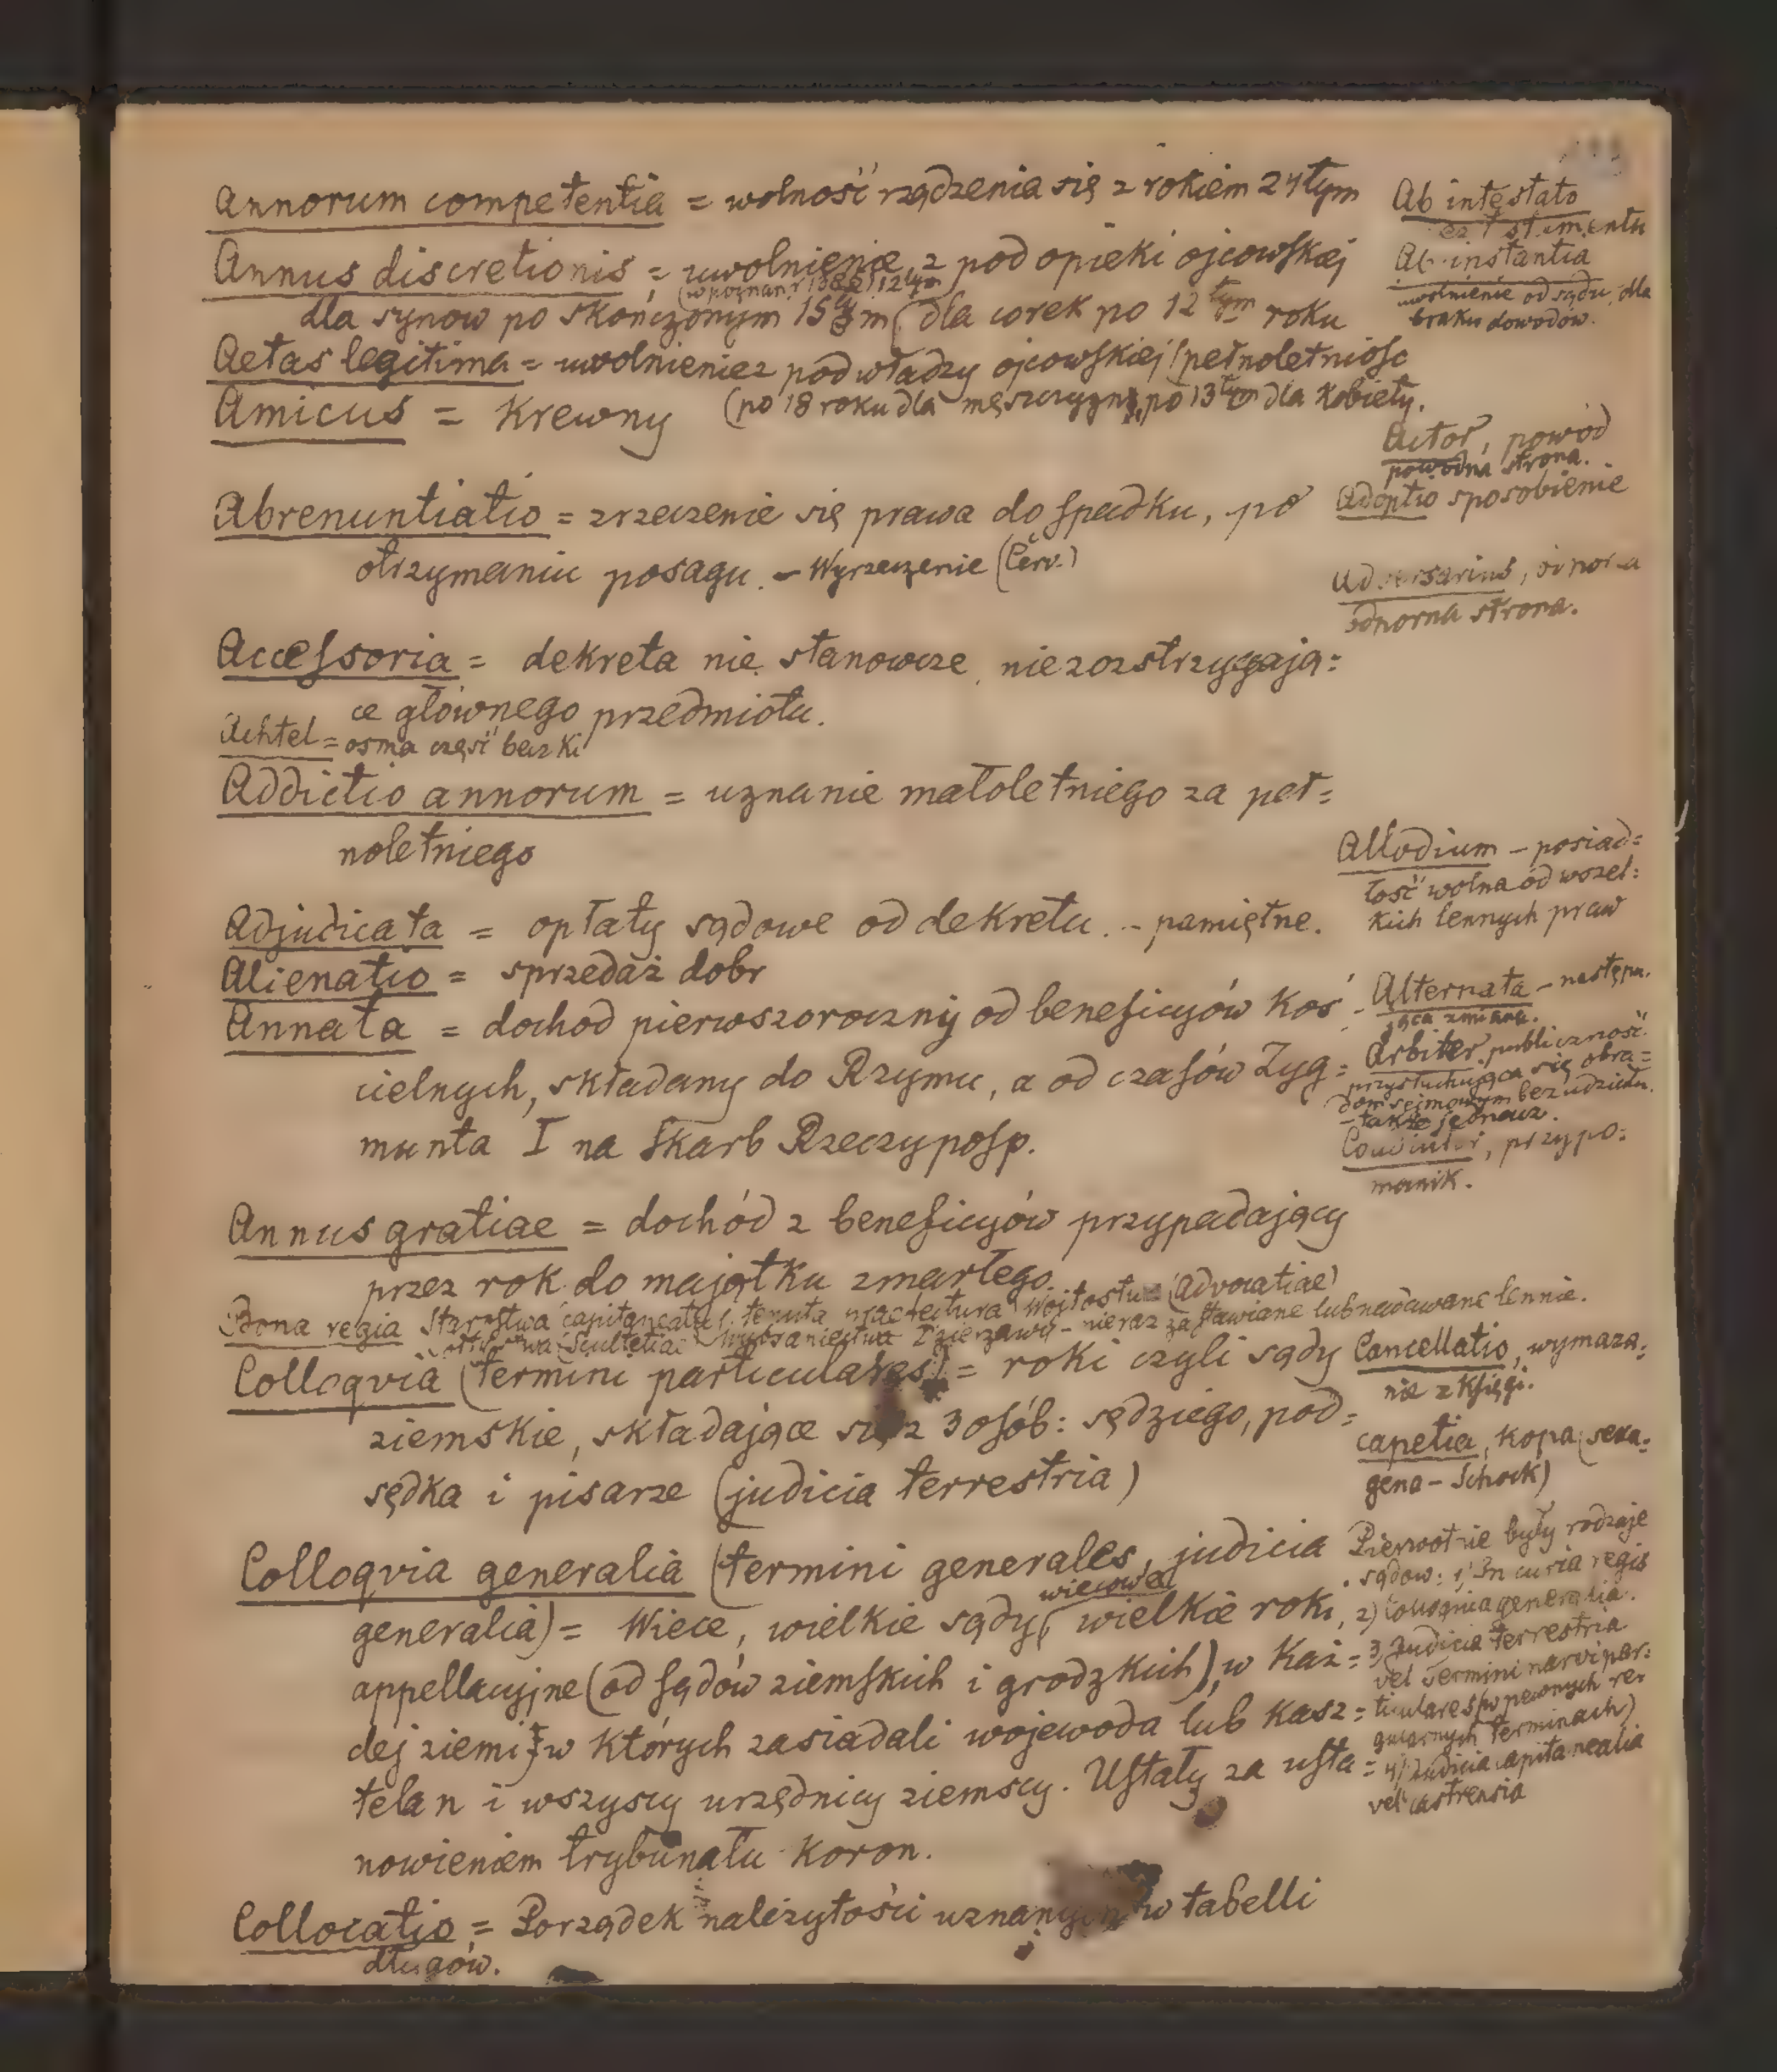 Annorum competentia = wolność rządzenia się z rokiem 24tym
Annus discretionis = uwolnienie z pod opieki ojcowskiej
(w poznan. r 1382) 12tym
dla synow po skończonym 15 m (dla corek po 12tym roku
Aetas legitima = uwolnienie z pod władzy ojcowskiej (pełnoletniość
Amicus = Krewny (po 18 roku dla męszczyzny, po 13tym dla Kobiety.
Abrenuntiatio = zrzeczenie się prawa do spadku, po
otrzymaniu posagu. – Wyrzeczenie (Červ.)
Accessoria = dekreta nie stanowcze, nierozstrzygają=
ce głównego przedmiotu.
Achtel = osma część beczki
Addictio annorum = uznanie małoletniego za peł=
noletniego
Adjudicata = opłaty sądowe od dekretu. – pamiętne.
Alienatio = sprzedaż dobr
Annata = dochod pierwszoroczny od beneficyów Koś-
cielnych, składany do Rzymu, a od czasów Zyg=
munta I na Skarb Rzeczyposp.
Annus gratiae = dochód z beneficyów przypadający
przez rok do majątku zmarłego.
Bona regia Starostwa (capitaneatus), tenuta, praefectura Wójtostwa (Advocatiae)
(Scultetiae) Wybraniectwa Dzierzawy – nieraz zastawiane lub nadawane lennie.
Colloqvia (termini particulares) = roki czyli sądy
ziemskie, składające się z 3 osób: sędziego, pod=
sędka i pisarze (judicia terrestria)
Colloqvia generalia (termini generales, judicia
generalia) = Wiece, wielkie sądy, wiecowe wielkie roki,
appellacyjne (od sądów ziemskich i grodzkich), w Każ=
dej ziemi, w których zasiadali wojewoda lub Kasz=
telan i wszyscy urzędnicy ziemscy. Ustały za usta=
nowieniem trybunału Koron.
Collocatio = Porządek należytości uznanych w tabelli
długów.
Ab intestato
Ab instantia
uwolnienie od sądu, dla
braku dowodów.
Actor, powód
powodna strona.
Adoptio sposobienie
Adversarius,
odporna strona.
Allodium – posiad=
łość wolna od wszel=
kich lennych praw
Alternata – następu.
jąca zmiana.
Arbiter, publiczność
przysłuchująca się obra=
dom sejmowym bez udziału.
– także jednacz.
Coadiutor, przypo=
mnik.
Cancellatio, wymaza=
nie z księgi.
capetia, kopa (sexa=
gena – Schock)
Pierwotnie były rodzaje
sądow: 1, In curia regis
2) Colloqvia generalia.
3, Judicia terrestria
vel termini parvi par=
ticulares (w pewnych re=
gularnych terminach)
4) Judicia capitanealia
vel castrensia